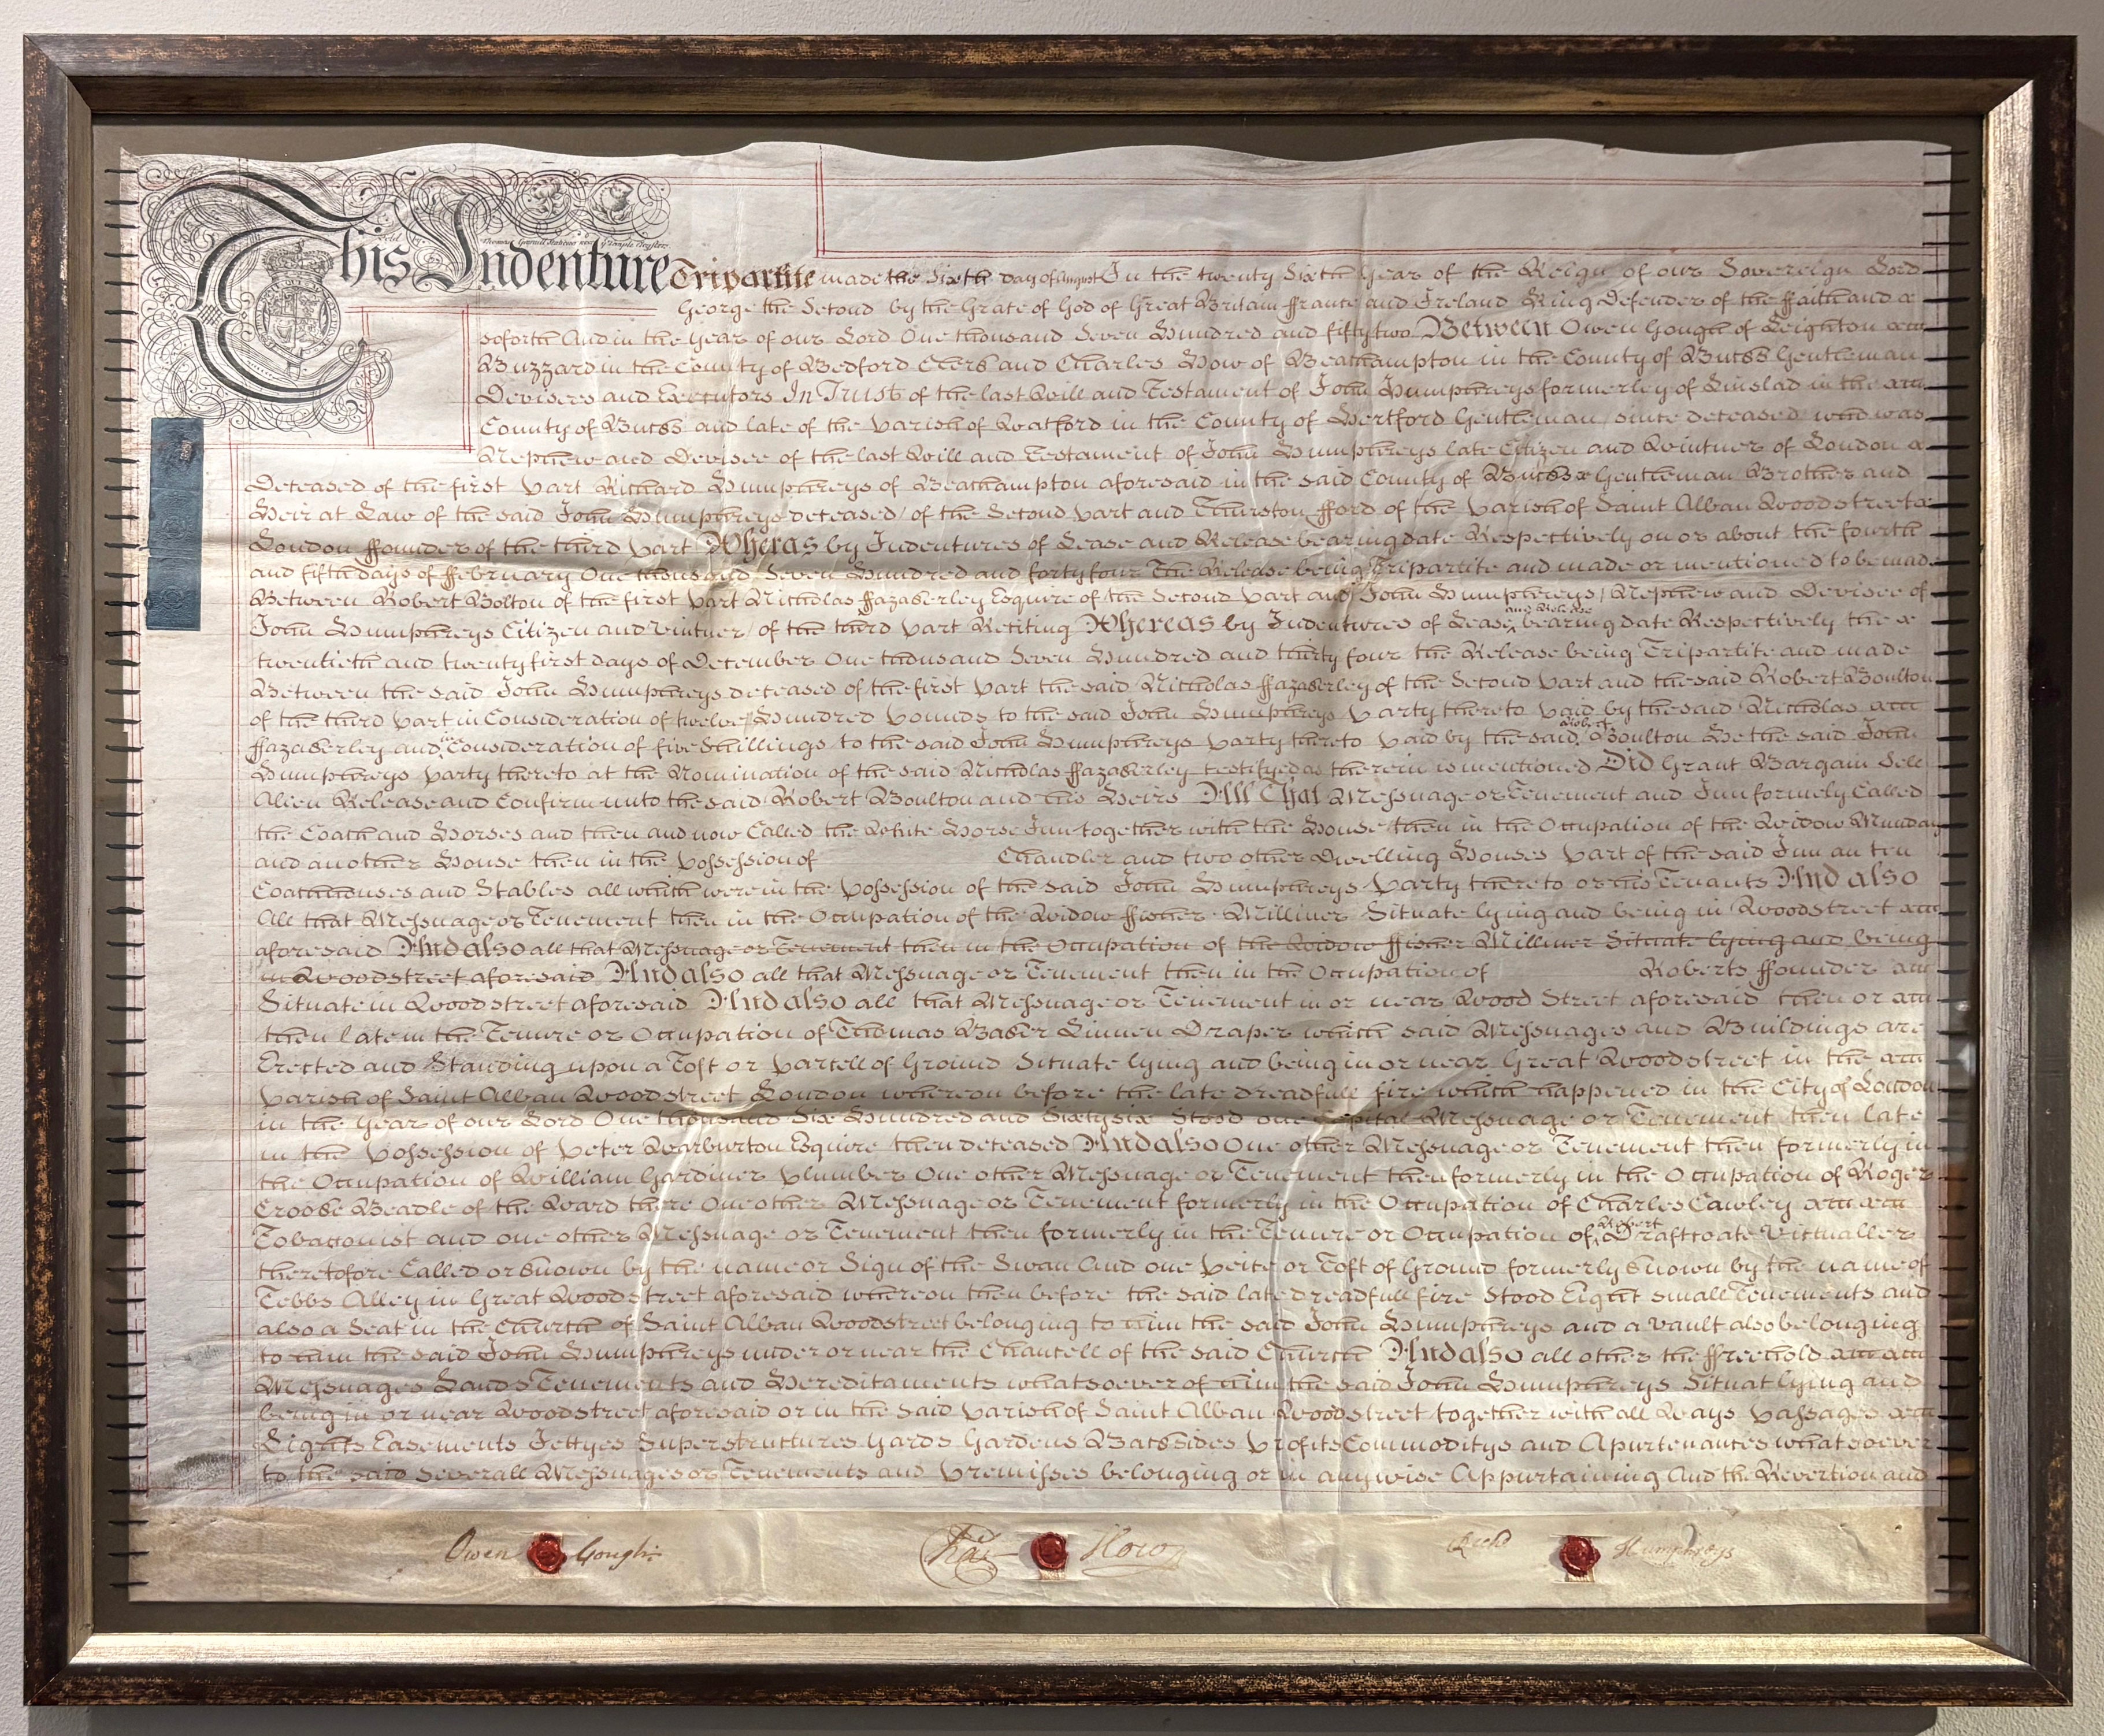 Sold by Thomas Stationer near ye Temple
This Indenture Tripartite made the Sixth day of August In the twenty Sixth Year of the Reign of our Sovereign Lord
George the Second by the Grace of God of Great Britain ffrance and Ireland King Defender of the ffaith and
soforth And in the Year of our Lord One thousand Seven Hundred and fifty two Between Owen Gough of Leighton
Buzzard in the County of Bedford Clerk and Charles How of Beachampton in the County of Bucks Gentleman
Devisees and Executors In Trust of the last Will and Testament of John Humphreys formerley of Linslad in the
County of Bucks and late of the Parish of Watford in the County of Hertford Gentleman since deceased who was
Nephew and Devisee of the last Will and Testament of John Humphreys late Citizen and Vintner of London
Deceased of the first Part Richard Humphreys of Beachampton aforesaid in the said County of Bucks Gentleman Brother and
Heir at Law of the said John Humphreys deceased of the Second Part and Thurston fford of the Parish of Saint Alban Woodstreet
London ffounder of the third Part Wheras by Indentures of Lease and Release bearing date Respectively on or about the fourth
and fifth days of ffebruary One thousand Seven Hundred and forty four The Release being Tripartite and made or mentioned to be made
Between Robert Bolton of the first Part Nicholas ffazakerley Esquire of the Second Part and John Humphreys (Nephew and Devisee of
John Humphreys Citizen and Vintner) of the third Part Reciting Whereas by Indentures of Lease and Release bearing date Respectively the
twentieth and twenty first days of December One thousand Seven Hundred and thirty four the Release being Tripartite and made
Between the said John Humphreys deceased of the first Part the said Nicholas ffazakerley of the Second Part and the said Robert Boulton
of the third Part in Consideration of twelve Hundred Pounds to the said John Humphreys Party thereto Paid by the said Nicholas
ffazakerley and Consideration of five Shillings to the said John Humphreys Party thereto Paid by the said Robert Boulton He the said John
Humphreys Party thereto at the Nomination of the said Nicholas ffazakerley testifyed as therein is mentioned Did Grant Bargain Sell
Alien Release and Confirm unto the said Robert Boulton and his Heirs All That Messuage or Tenement and Inn formely Called
the Coach and Horses and then and now Called the White Horse Inn together with the House then in the Occupation of the Widow Munday
and another House then in the Possession of Chandler and two other Dwelling Houses Part of the said Inn
Coachhouses and Stables all which were in the Possession of the said John Humphreys Party thereto or his Tenants And also
All that Messuage or Tenement then in the Occupation of the Widow ffisher Milliner Situate lying and being in Woodstreet
aforesaid And also all that Messuage or Tenement then in the Occupation of the Widow ffisher Milliner Situate lying and being
in Woodstreet aforesaid And also all that Messuage or Tenement then in the Occupation of Roberts ffounder
Situate in Woodstreet aforesaid And also all that Messuage or Tenement in or near Wood Street aforesaid then or
then late in the Tenure or Occupation of Thomas Baker Linnen Draper which said Messuages and Buildings are
Erected and Standing upon a Toft or Parcell of Ground Situate lying and being in or near Great Woodstreet in the
Parish of Saint Alban Woodstreet London whereon before the late dreadfull fire which happened in the City of London
in the Year of our Lord One thousand Six Hundred and Sixty six stood one Capital Messuage or Tenement then late
in the Possession of Peter Warburton Esquire then deceased And also One other Messuage or Tenement then formerly in
the Occupation of William Gardiner Plumber One other Messuage or Tenement then formerly in the Occupation of Roger
Crooke Beadle of the Ward there One other Messuage or Tenement formerly in the Occupation of Charles Cawley
Tobacconist and one other Messuage or Tenement then formerly in the Tenure or Occupation of Robert Draftcate Victualler
theretofore Called or known by the name or Sign of the Swan And one Peice or Toft of Ground formerly known by the name of
Tebbs Alley in Great Woodstreet aforesaid whereon then before the said late dreadfull fire Stood Eight small Tenements and
also a Seat in the Church of Saint Alban Woodstreet belonging to him the said John Humphreys and a Vault also belonging
to him the said John Humphreys under or near the Chancell of the said Church And also all other the ffreehold
Messuages Lands Tenements and Hereditaments whatsoever of him the said John Humphreys Situat lying and
being in or near Woodstreet aforesaid or in the said Parish of Saint Alban Woodstreet together with all Ways Passages
Lights Easements Jettyes Superstructures Yards Gardens Backsides Profits Commoditys and Apurtenances whatsoever
to the said Severall Messuages or Tenements and Premisses belonging or in any wise Appurtaining And the Revertion and
Owen Gough Chas How Richd Humphreys